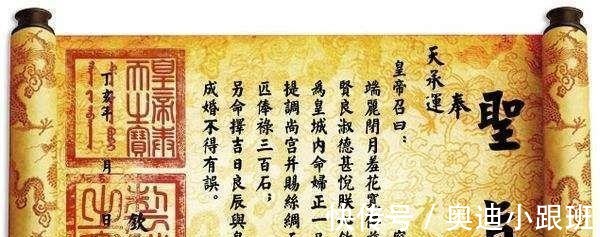 聖
奉
天承運
皇帝召曰：
端麗閉月羞花
賢良淑德甚悅朕
為皇城内命婦正一品
提調尚宫并賜絲綢
匹俸祿三百石；
另命擇吉日良辰與皇
成婚不得有誤。
欽
丁亥年 月 日
皇帝奉
天之寶
快传号 / 奥迪小跟班